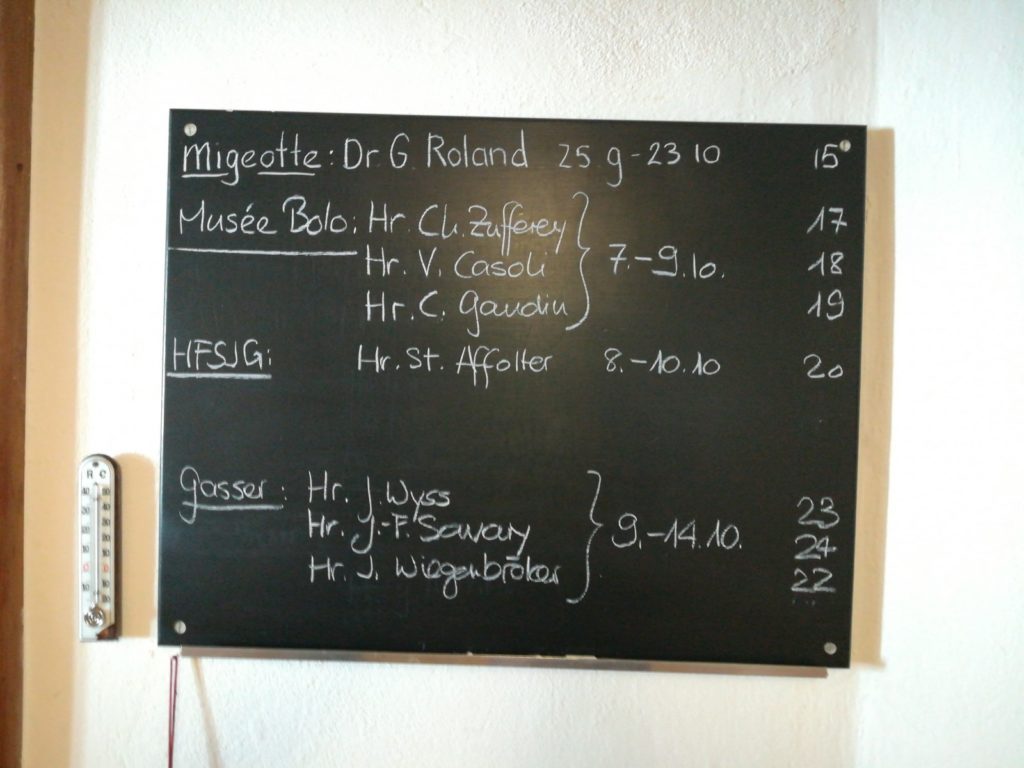 Migeotte: Dr G Roland 25 9-23 10 15
Musée Bolo: Hr. Ch. Zufferey 17
Hr. V. Casoli 7.-9.10. 18
Hr. C. Gaudin 19
HFSJG: Hr. St. Affolter 8.-10.10 20
Gasser: Hr. J. Wyss 23
Hr. J.-F. Savary 9.-14.10. 24
Hr. J. Wiegenbröker 22
R C